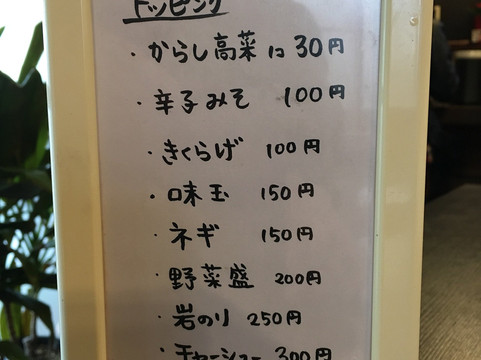 トッピング
・からし高菜 1コ 30円
・辛子みそ 100円
・きくらげ 100円
・味玉 150円
・ネギ 150円
・野菜盛 200円
・岩のり 250円
・チャーシュー 300円